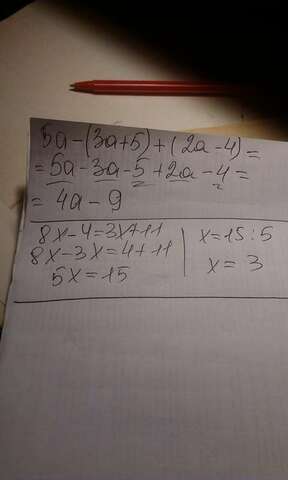 5a-(3a+5)+(2a-4)=
=5a-3a-5+2a-4=
=4a-9
8x-4=3x+11
8x-3x=4+11
5x=15
x=15:5
x=3